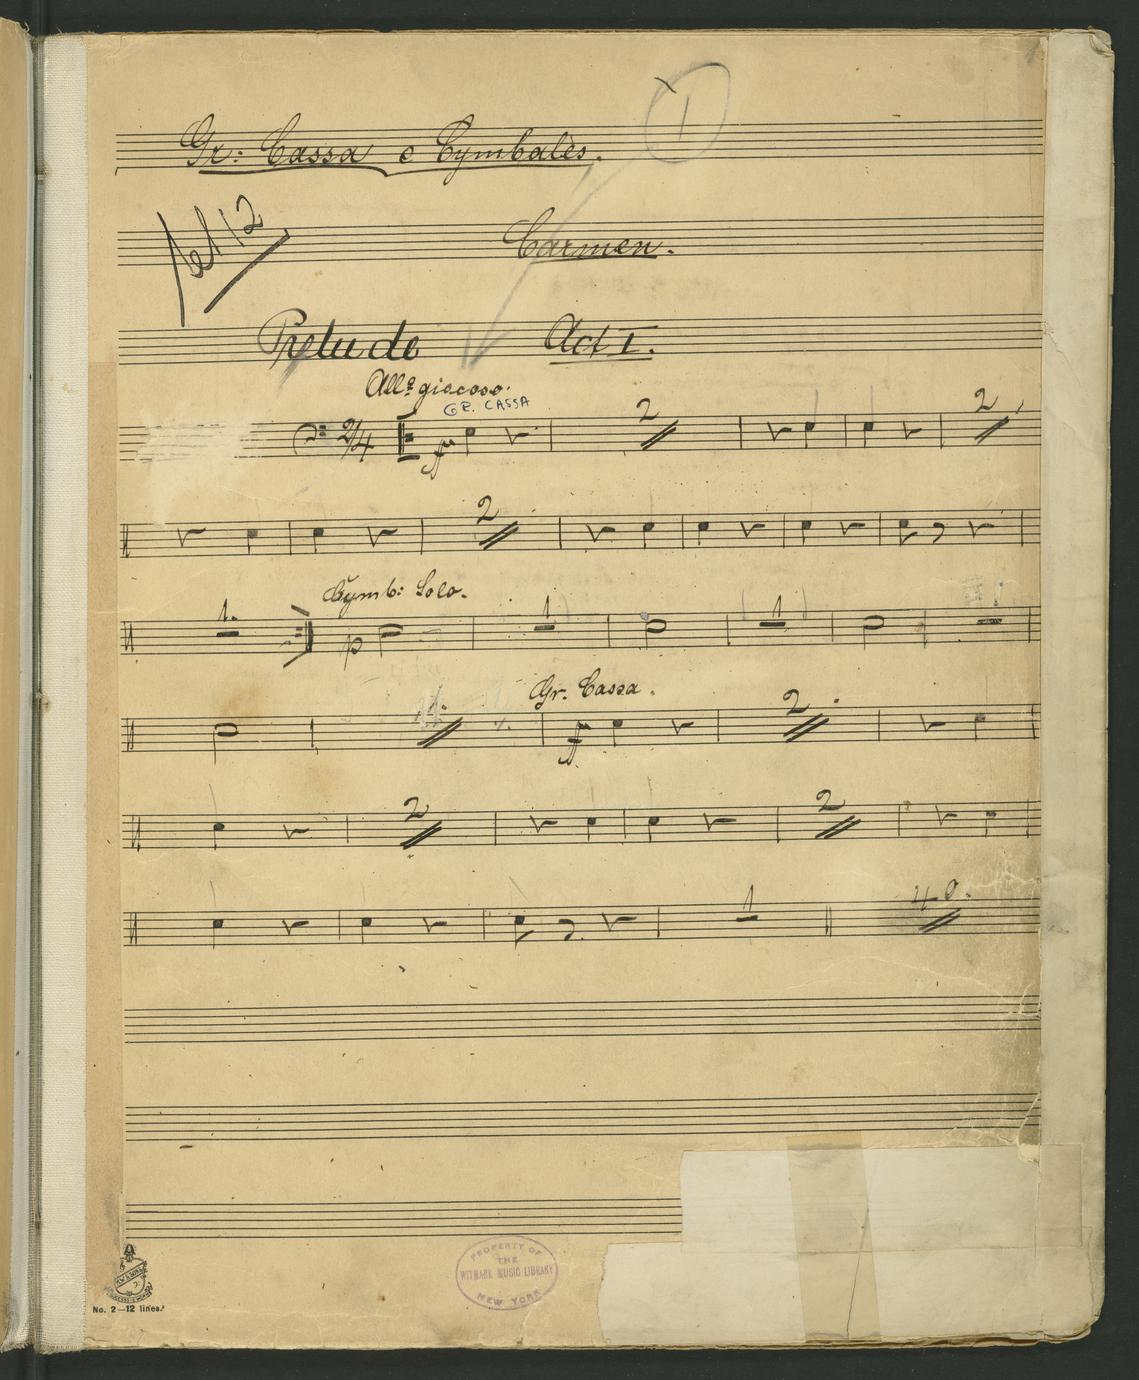 1
Gr: Cassa e Cymbalès.
12
Carmen.
Prelude Act I.
All° giocoso.
GR. CASSA
2/4 ff 2 2
2
1. Cymb: Solo.
p 1 1
Gr. Cassa.
f 2
2 2
1 40.
PROPERTY OF
THE
WITMARK MUSIC LIBRARY
NEW YORK
No. 2—12 lines.